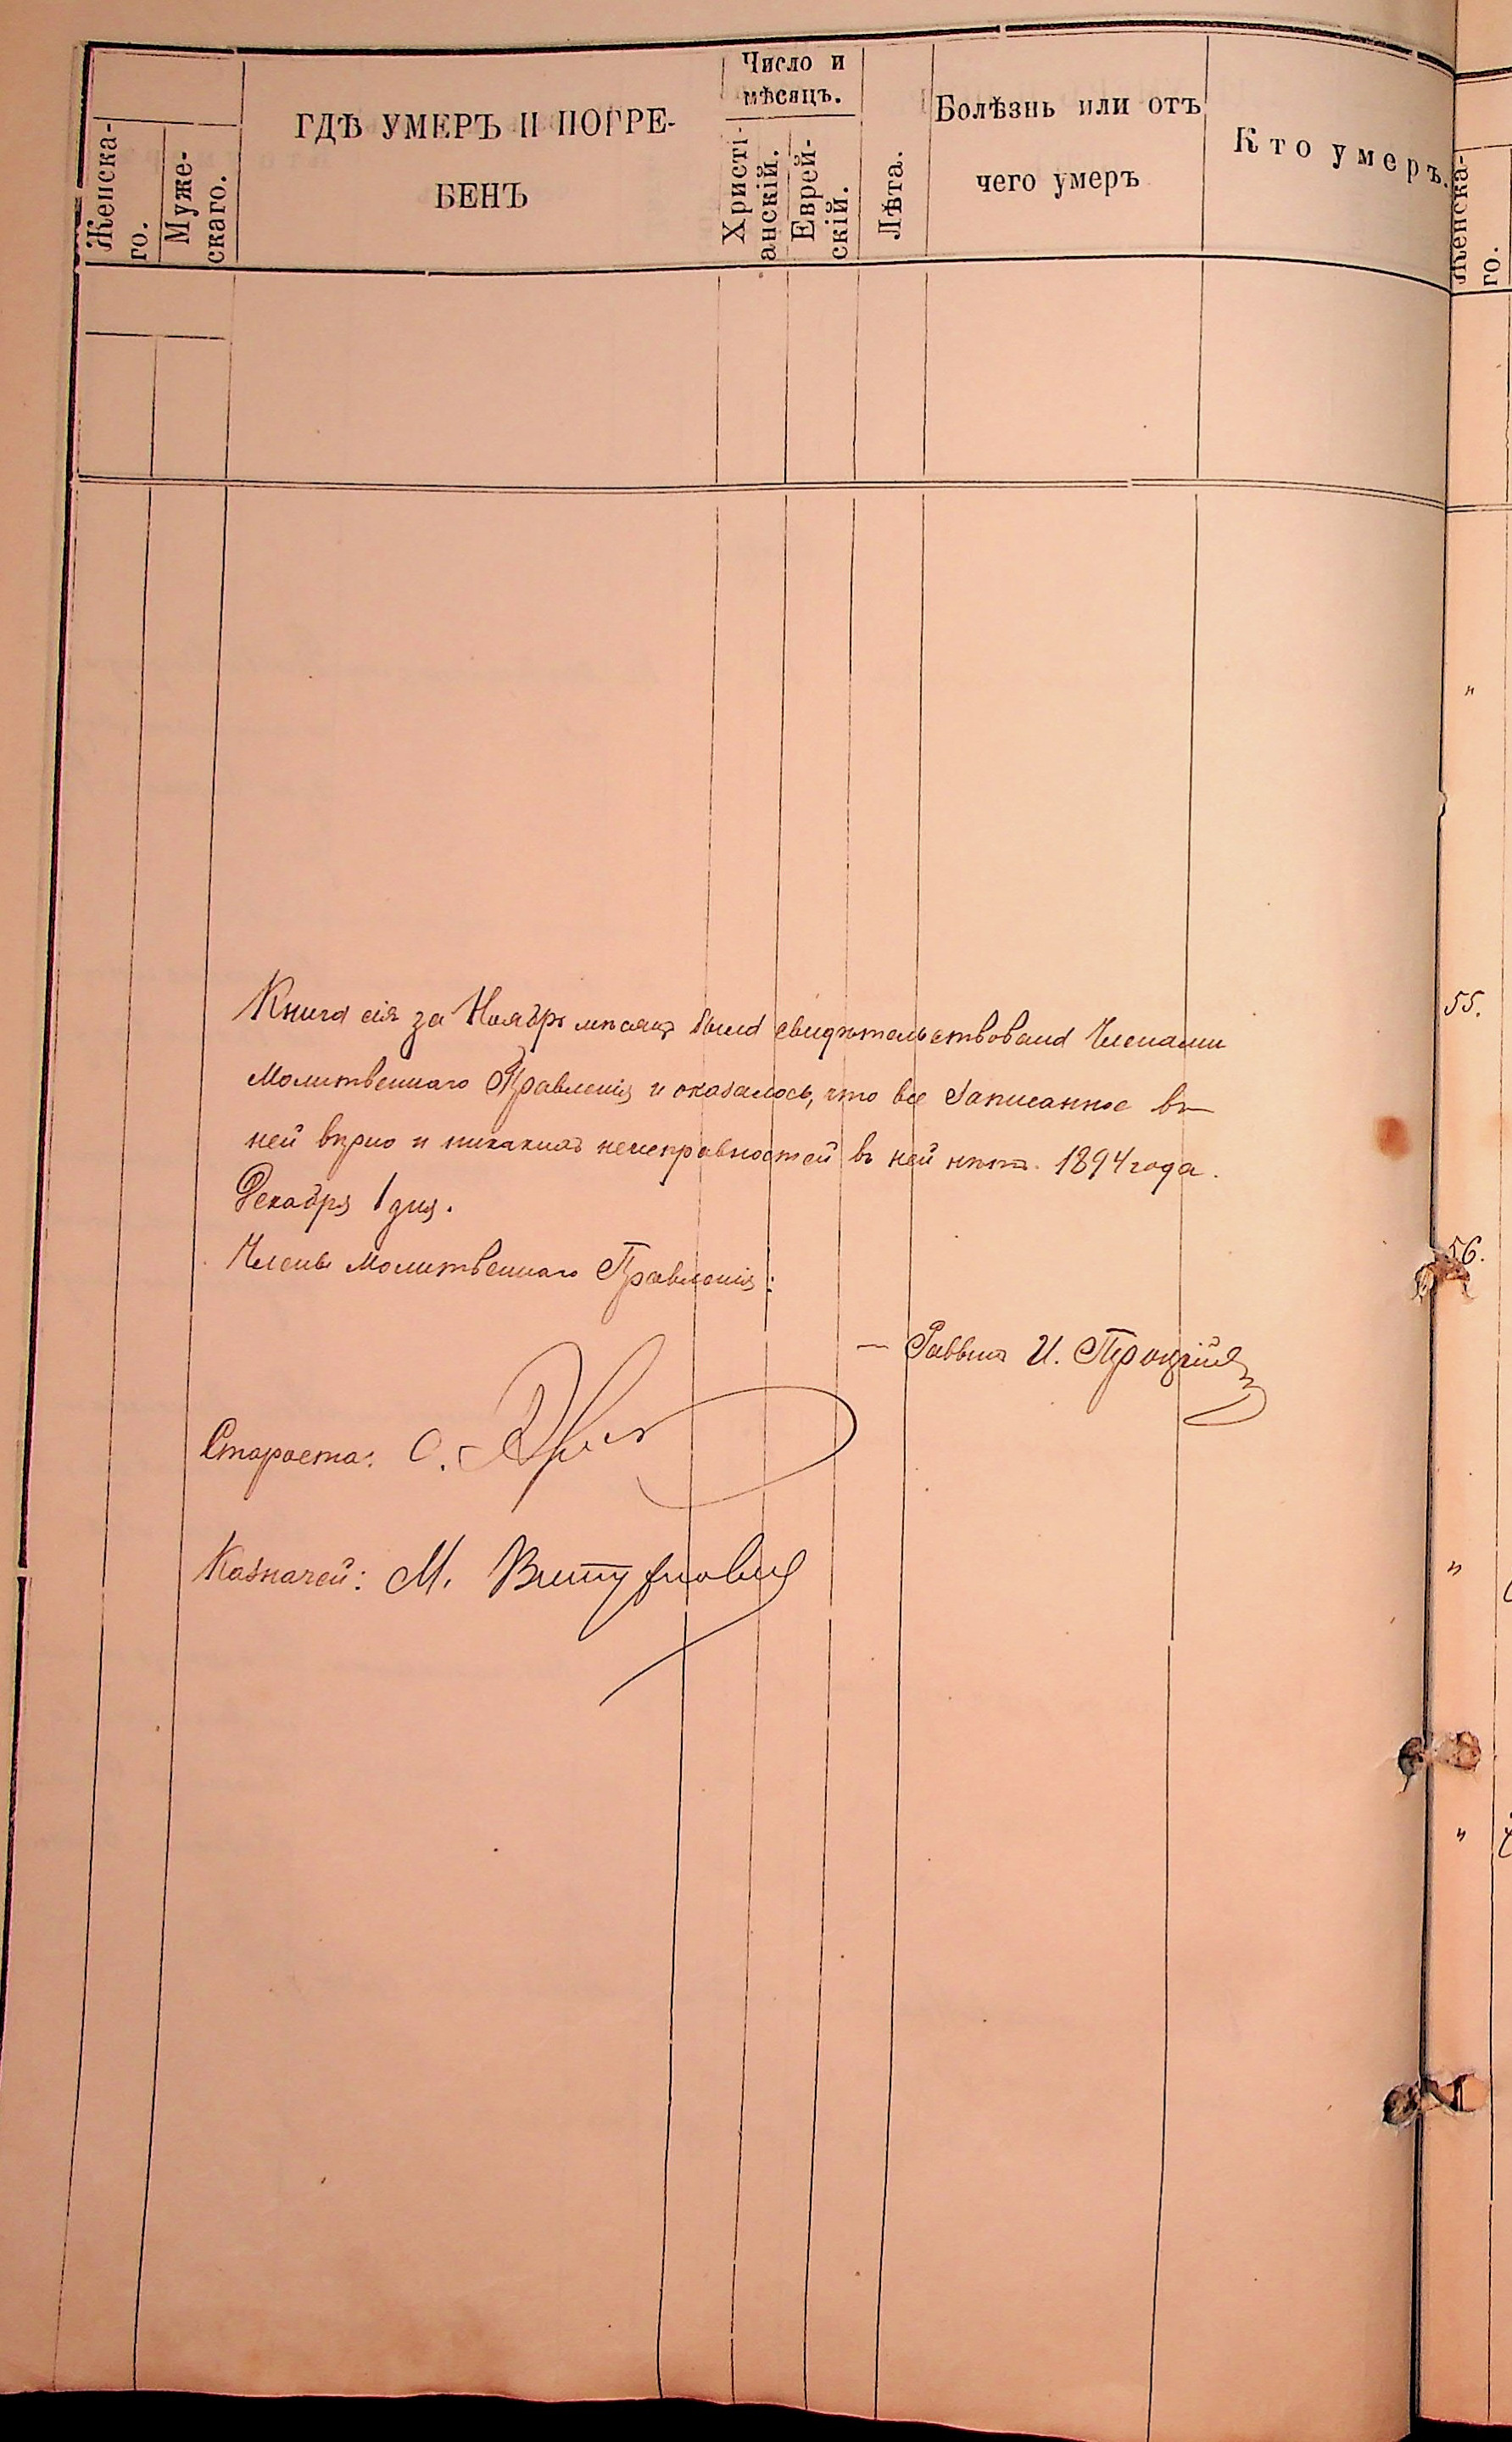 Женска-
го.
Муже-
скаго.
ГДѢ УМЕРЪ И ПОГРЕ-
БЕНЪ
Число и
мѣсяцъ.
Христі-
анскій.
Еврей-
скій.
Лѣта.
Болѣзнь или отъ
чего умеръ
Кто умеръ.
Женска-
го.
Книга сія за Ноябрь мѣсяцъ была свидѣтельствована Членами
Молитвеннаго Правленія и оказалось, что все записанное въ
ней вѣрно и никакихъ неисправностей въ ней нѣтъ. 1894 года.
Декабря 1 дня.
Члены Молитвеннаго Правленія:
— Раввинъ И.
Староста: С.
Казначей: М.
"
55.
56.
"
"